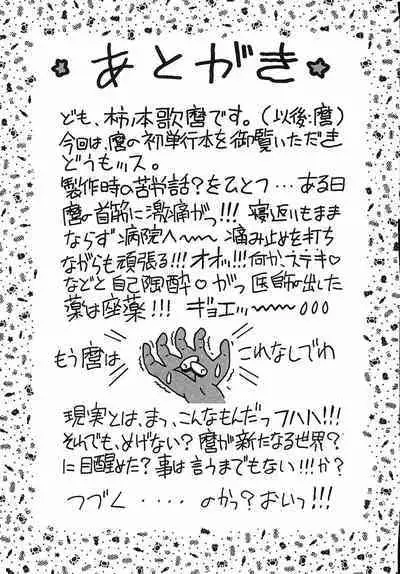 あとがき
ども、柿ノ本歌麿です。(以後:麿)
今回は、麿の初単行本を御覧いただき
どうもッス。
製作時の苦労話?をひとつ…ある日
麿の首筋に激痛がっ!!! 寝返いもまま
ならず病院へ〜〜 痛み止めを打ち
ながらも頑張る!!! オオッ!!!何かステキ♡
などと自己陶酔♡がっ医師が出した
薬は座薬!!! ギョエッ〜〜〜ooo
もう麿は これなしでわ
現実とは、まっ、こんなもんだっフハハ!!!
それでも、めげない?麿が新たなる世界?
に目醒めた?事は言うまでもない!!!か?
つづく・・・・のかっ?おいっ!!!